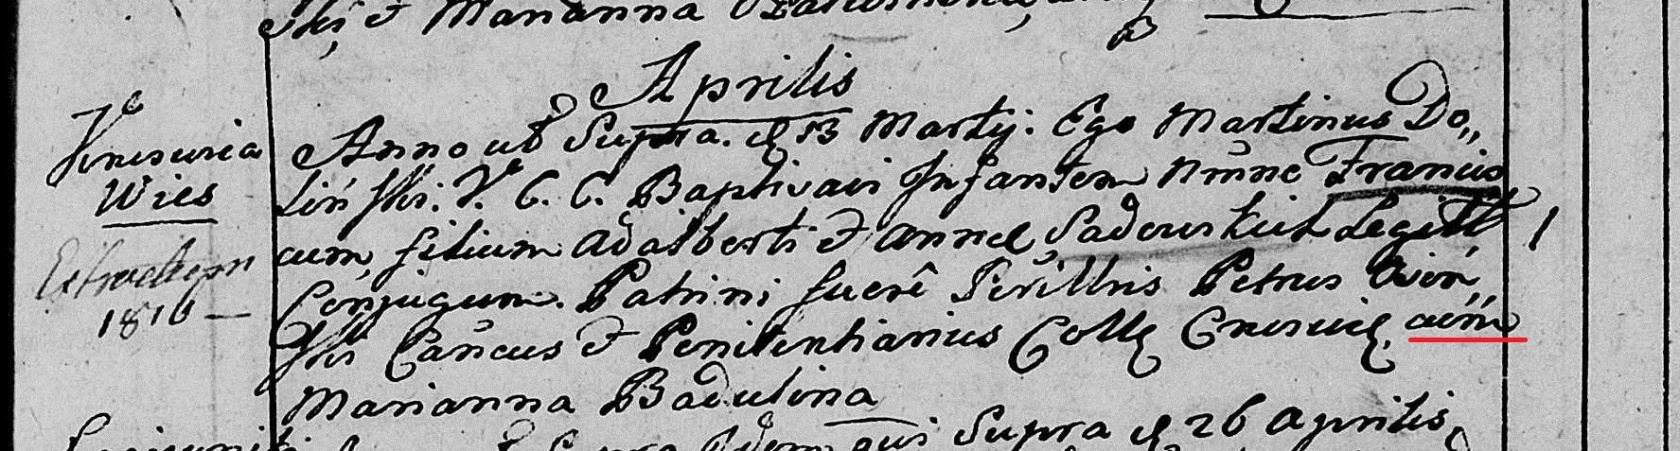 et Marianna
Aprilis
Kniesucia
Wies
Extractum
1816 —
Anno ut Supra. d 13 Martij. Ego Martinus Do„
liński. V. C. C. Baptivavi Infantem nmne Francis
cum, filium Adalberti et Annæ Sadowskich Legitt
Conjugum. Patrini fuerê Perillris Petrus
ski Cancus et Penitentiarius Collę cum
Marianna Badulina
Supra d 26 Aprilis